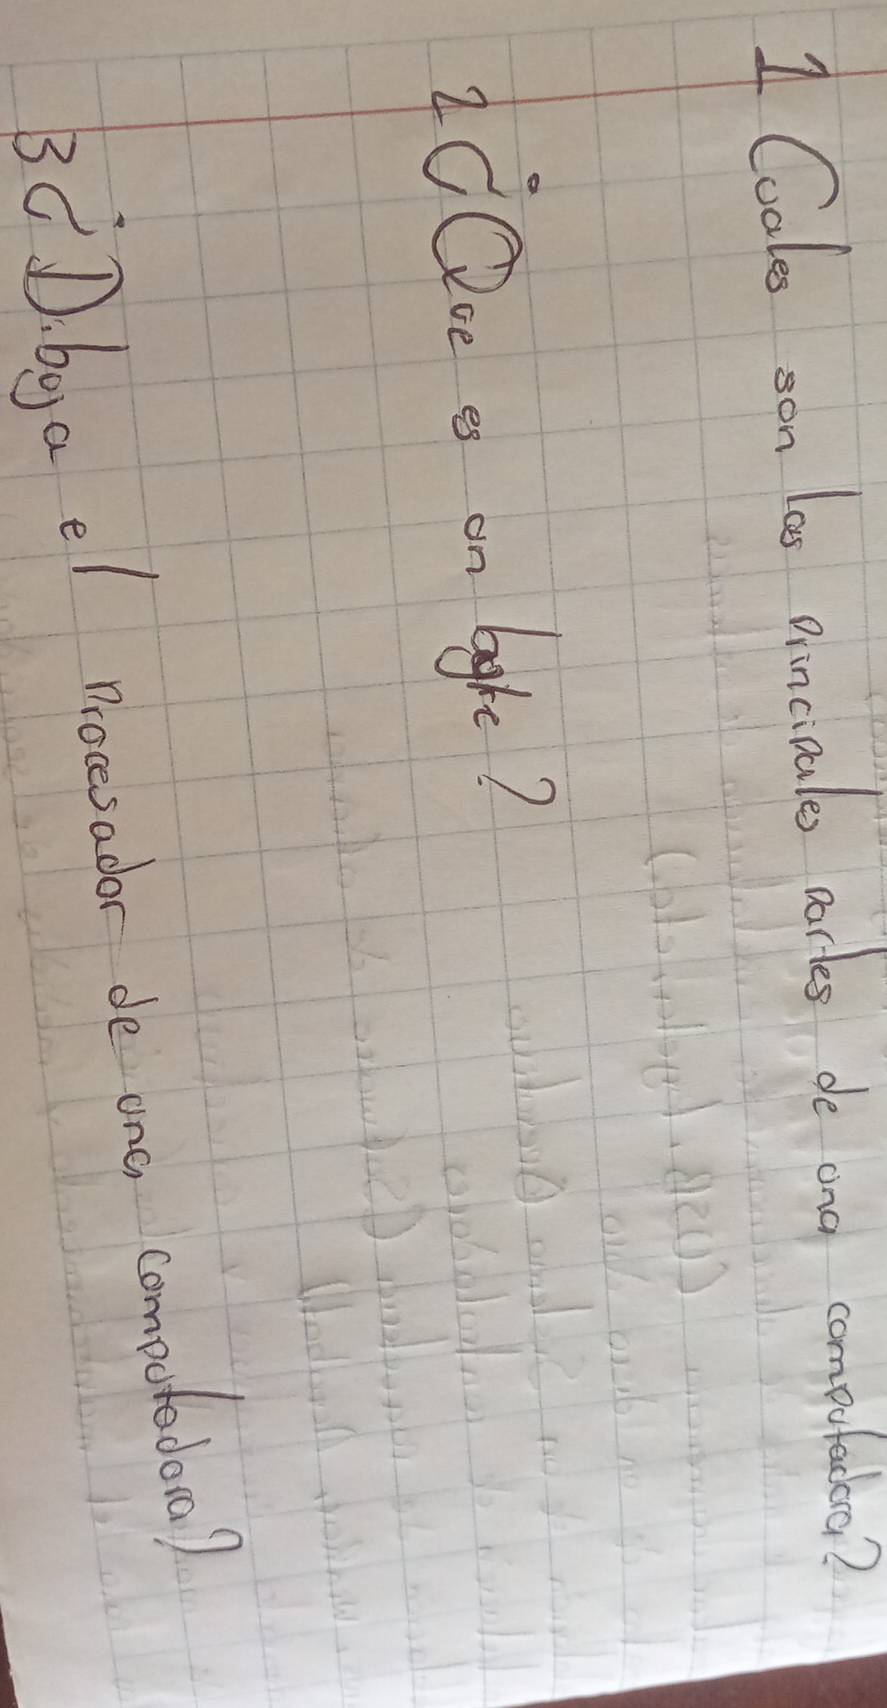 1 Cuales son las principales partes de una computadora?
2 ¿Que es un byte?
3 ¿Dibuja el procesador de una computadora?